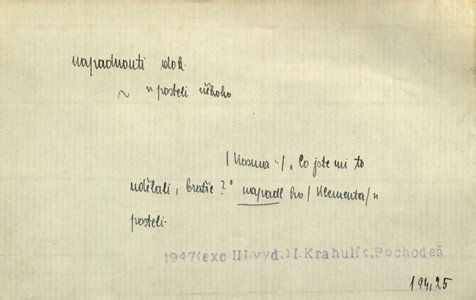 napadnouti dok.
~ v posteli někoho
/Kosma :/ „Co jste mi to
udělali, bratře?" napadl ho /Klementa/ v
posteli.
1947(exc III.vyd.)I.Krahulík.Pochodeň
194,25